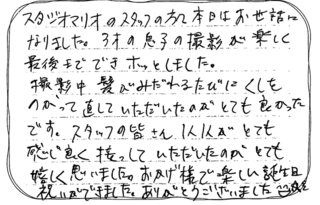 スタジオマリオのスタッフの方々本日はお世話に
なりました。3才の息子の撮影が楽しく
最後までできホッとしました。
撮影中 髪がみだれるたびにくしを
つかって直していただいたのがとても良かった
です。スタッフの皆さん1人1人がとても
感じ良く接っしていただいたのがとても
嬉しく思いました。おかげ様で楽しい誕生日
祝いができました。ありがとうございました